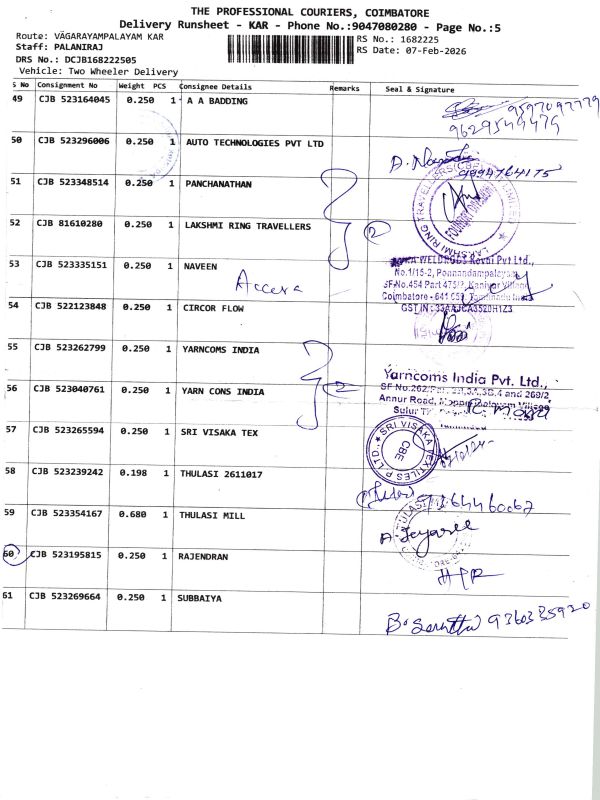 THE PROFESSIONAL COURIERS, COIMBATORE
Delivery Runsheet - KAR - Phone No.:9047080280 - Page No.:5
Route: VAGARAYAMPALAYAM KAR
RS No.: 1682225
Staff: PALANIRAJ
RS Date: 07-Feb-2026
DRS No.: DCJB168222505
Vehicle: Two Wheeler Delivery
S No Consignment No Weight PCS Consignee Details Remarks Seal & Signature
49 CJB 523164045 0.250 1 A A BADDING
9629544479
50 CJB 523296006 0.250 1 AUTO TECHNOLOGIES PVT LTD
9994764175
51 CJB 523348514 0.250 1 PANCHANATHAN
LAKSHMI RING TRAVELLERS
52 CJB 81610280 0.250 1 LAKSHMI RING TRAVELLERS
2
53 CJB 523335151 0.250 1 NAVEEN
Kovai Pvt Ltd.,
No.1/15-2, Ponnandampalayam
SF No.454 Part 475/2, Kaniyur Village
Coimbatore - 641 659, Tamilnadu
Accexa
54 CJB 522123848 0.250 1 CIRCOR FLOW
GSTIN: 33AAJCA3520H1Z3
55 CJB 523262799 0.250 1 YARNCOMS INDIA
Yarncoms India Pvt. Ltd.,
56 CJB 523040761 0.250 1 YARN CONS INDIA
2
SF No.262/ 4 and 269/2
Annur Road, Village
Sulur
57 CJB 523265594 0.250 1 SRI VISAKA TEX
SRI VISAKA TEXTILES P. LTD.,
CBE
58 CJB 523239242 0.198 1 THULASI 2611017
59 CJB 523354167 0.680 1 THULASI MILL
A. Jeyasree
60 CJB 523195815 0.250 1 RAJENDRAN
61 CJB 523269664 0.250 1 SUBBAIYA
9360335920